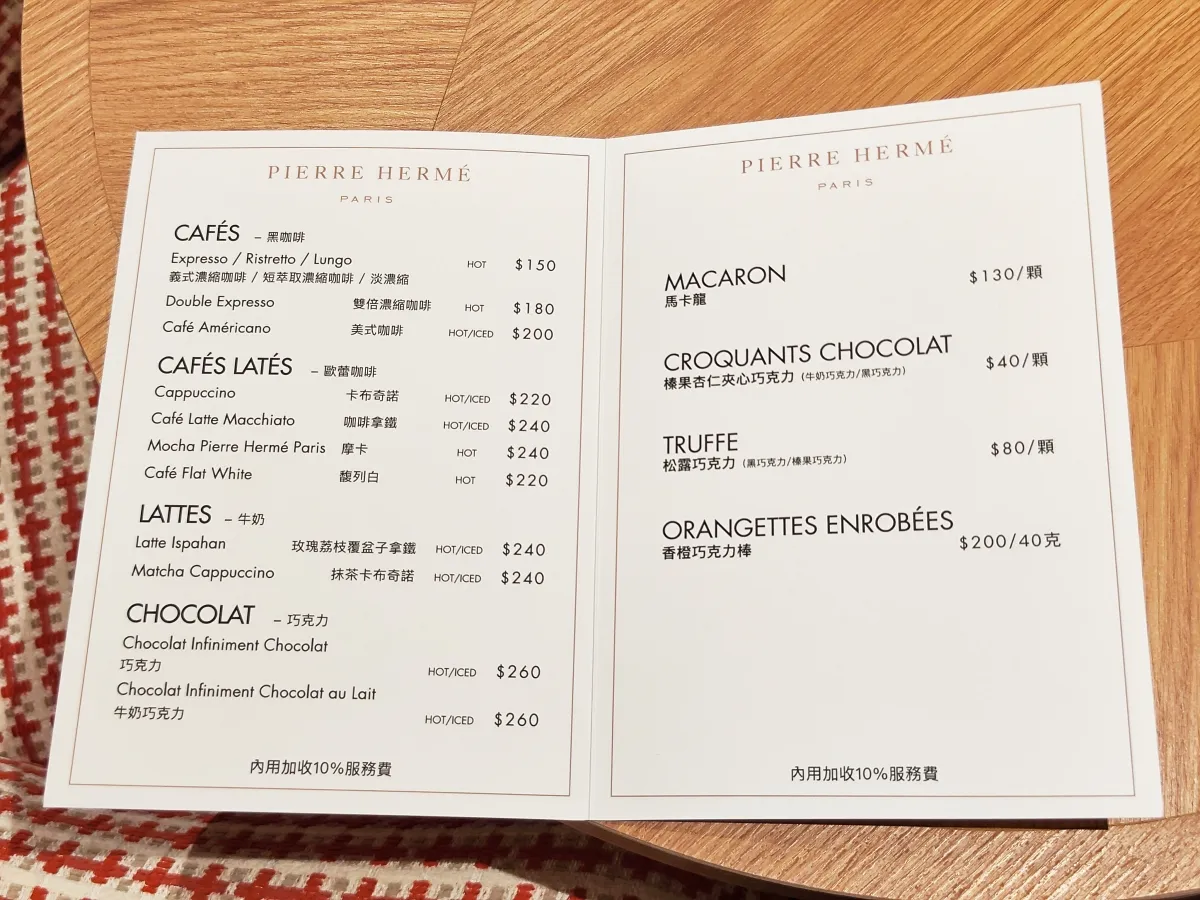 PIERRE HERMÉ
PARIS
CAFÉS – 黑咖啡
Expresso / Ristretto / Lungo HOT $150
義式濃縮咖啡 / 短萃取濃縮咖啡 / 淡濃縮
Double Expresso 雙倍濃縮咖啡 HOT $180
Café Américano 美式咖啡 HOT/ICED $200
CAFÉS LATÉS – 歐蕾咖啡
Cappuccino 卡布奇諾 HOT/ICED $220
Café Latte Macchiato 咖啡拿鐵 HOT/ICED $240
Mocha Pierre Hermé Paris 摩卡 HOT $240
Café Flat White 馥列白 HOT $220
LATTES – 牛奶
Latte Ispahan 玫瑰荔枝覆盆子拿鐵 HOT/ICED $240
Matcha Cappuccino 抹茶卡布奇諾 HOT/ICED $240
CHOCOLAT – 巧克力
Chocolat Infiniment Chocolat
巧克力 HOT/ICED $260
Chocolat Infiniment Chocolat au Lait
牛奶巧克力 HOT/ICED $260
內用加收10%服務費
PIERRE HERMÉ
PARIS
MACARON $130/顆
馬卡龍
CROQUANTS CHOCOLAT $40/顆
榛果杏仁夾心巧克力 (牛奶巧克力/黑巧克力)
TRUFFE $80/顆
松露巧克力 (黑巧克力/榛果巧克力)
ORANGETTES ENROBÉES $200/40克
香橙巧克力棒
內用加收10%服務費